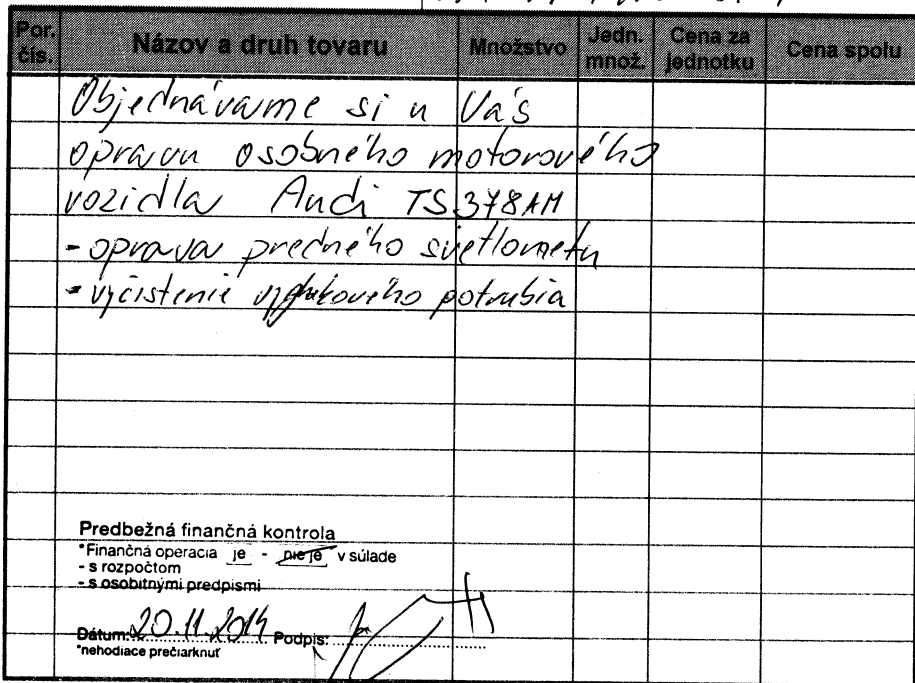 Por. čís. Názov a druh tovaru Množstvo Jedn. množ. Cena za jednotku Cena spolu
Objednávame si u Vás
opravu osobného motorového
vozidla Audi TS378AM
- oprava predného svetlometu
- vyčistenie výfukového potrubia
Predbežná finančná kontrola
*Finančná operacia je - nie je v súlade
- s rozpočtom
- s osobitnými predpismi
Dátum: 20.11.2014 Podpis:
*nehodiace prečiarknuť